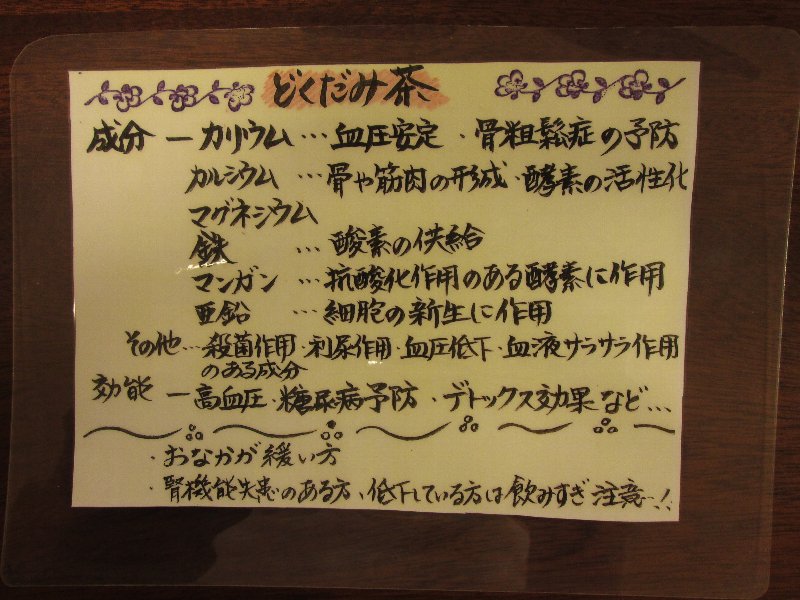 どくだみ茶
成分 ー カリウム … 血圧安定 ・ 骨粗鬆症の予防
カルシウム … 骨や筋肉の形成・酵素の活性化
マグネシウム
鉄 … 酸素の供給
マンガン … 抗酸化作用のある酵素に作用
亜鉛 … 細胞の新生に作用
その他…殺菌作用・利尿作用・血圧低下・血液サラサラ作用
のある成分
効能 ー 高血圧・糖尿病予防・デトックス効果など…
・おなかが緩い方
・腎機能失患のある方、低下している方は飲みすぎ注意ー!!